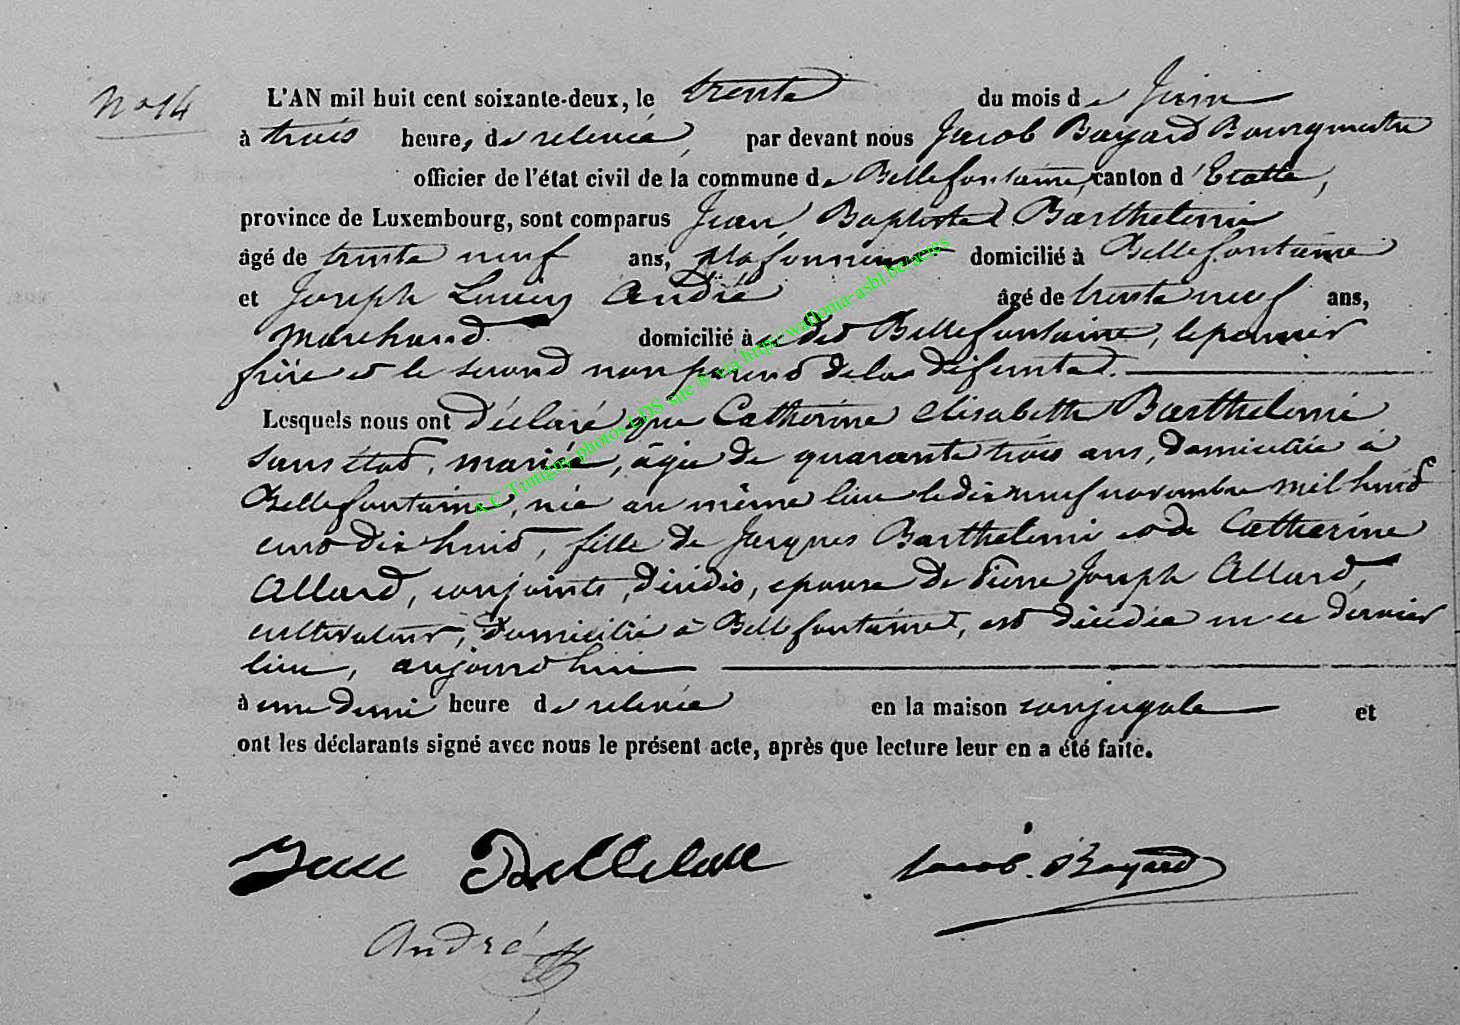 No 14
L'AN mil huit cent soixante-deux, le trente du mois de Juin
à trois heure, de relevée, par devant nous Jacob Bayard Bourgmestre
officier de l'état civil de la commune de Bellefontaine, canton d'Etalle,
province de Luxembourg, sont comparus Jean Baptiste Barthelemi
âgé de trente neuf ans, plafonneur domicilié à Bellefontaine
et Joseph Lucien André âgé de trente neuf ans,
marchand domicilié à Bellefontaine, le premier
frère et le second non parent de la défunte.
Lesquels nous ont déclaré que Catherine Elisabette Barthelemi
sans état, mariée, âgée de quarante trois ans, domiciliée à
Bellefontaine, née au même lieu le dix neuf novembre mil huit
cent dix huit, fille de Jacques Barthelemi et de Catherine
Allard, conjoints, décédés, epouse de Pierre Joseph Allard,
cultivateur, domicilié à Bellefontaine, est décédée en ce dernier
lieu, aujourd'hui
à une demi heure de relevée en la maison conjugale et
ont les déclarants signé avec nous le présent acte, après que lecture leur en a été faite.
Jacob Bayard
André
A.C Tintigny photos LDS site & via http://wallonia-asbl.be/actes